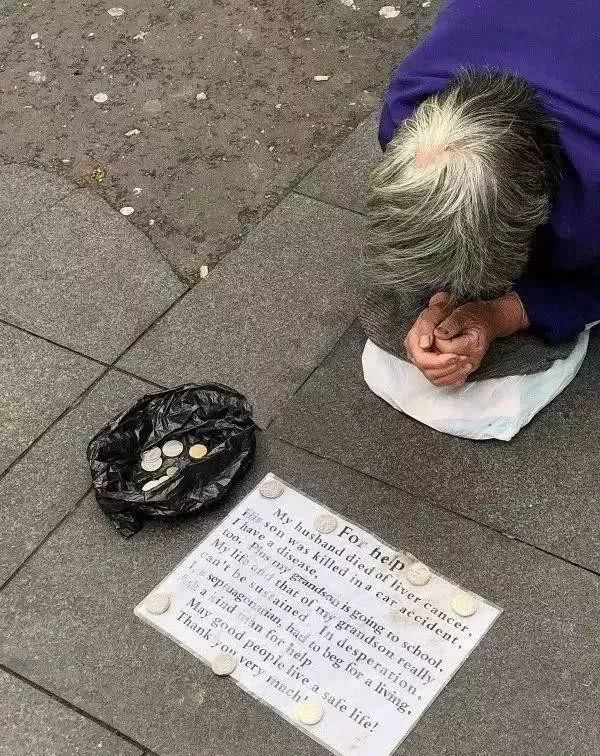 For help
My husband died of liver cancer,
His son was killed in a car accident,
I have a disease,
too. Plus my grandson is going to school.
My life and that of my grandson really
can't be sustained. In desperation,
I septuagenarian, had to beg for a living,
a kind man for help
May good people live a safe life!
Thank you very much!